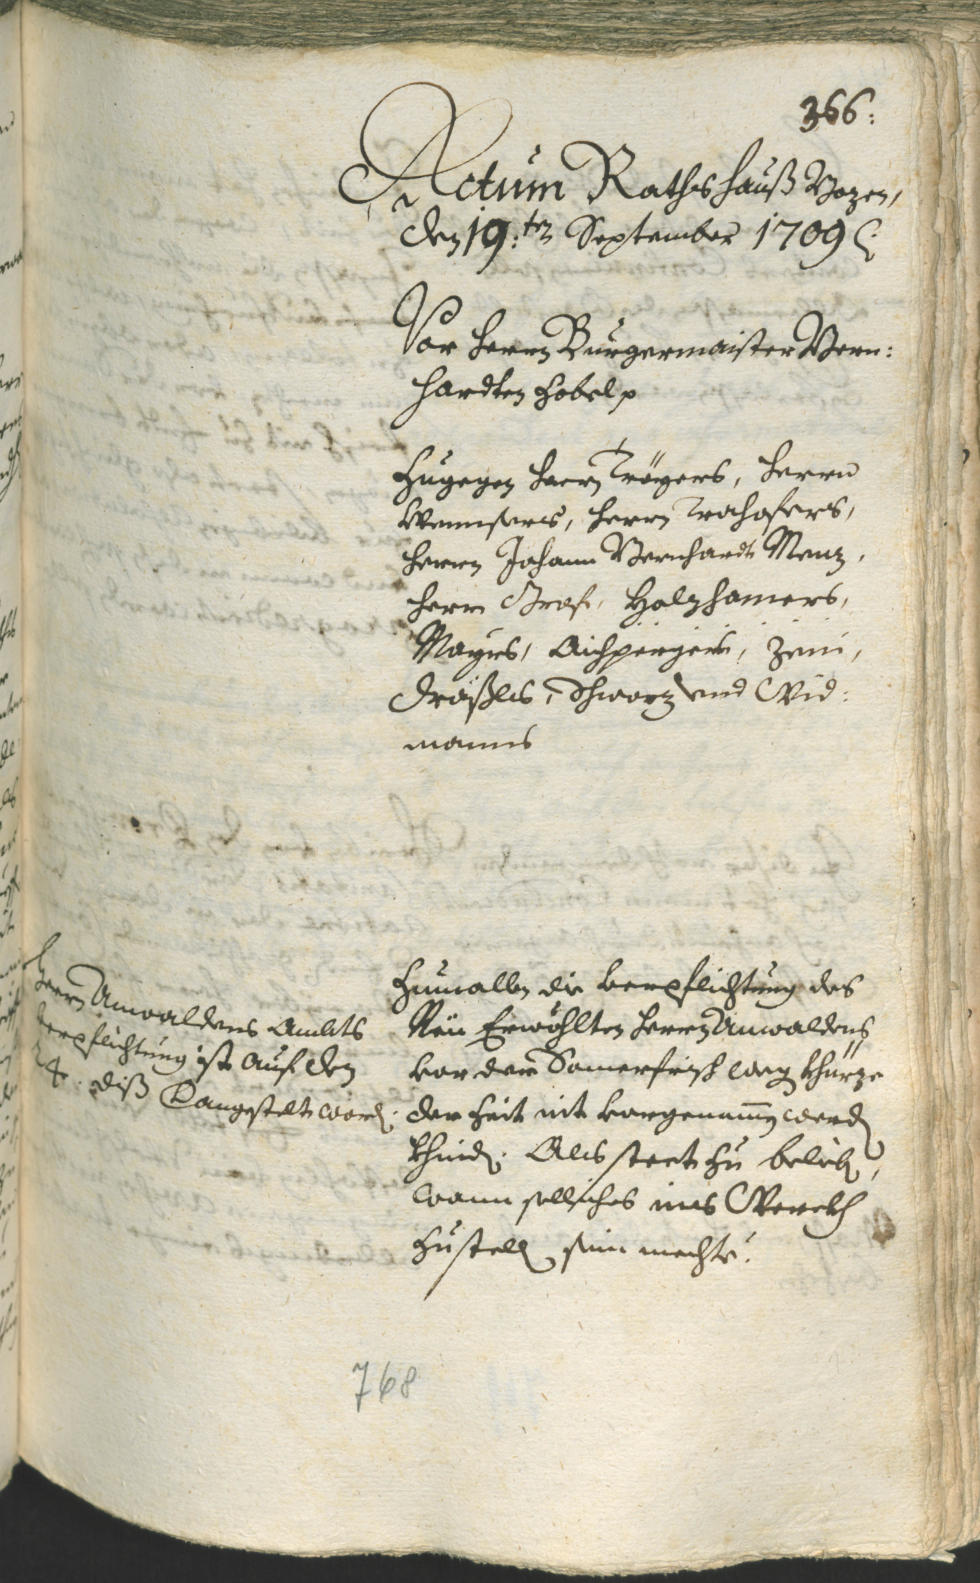 366:
Actum Rathshauß Bozen,
den 19:ten September 1709
Vor herrn Burgermaister Bern:
hardten Hobel p
Zugegen herrn Tröyers, herrn
herrn
herrn Johann Bernhardt Menz,
herrn Graf, Holzhamers,
Mayrs, Aichpergers, Zeni,
Dräxls, Schwarz und Wid:
manns
herrn Anwaldens Ambts
verpflichtung ist auf den
24. diß angestelt word.
Zumallen die verpflichtung des
Neu Erwöhlten herrn Anwaldens
vor der Somerfrisch weg khürze
der Zeit nit vorgenamen werd
khind. Als steet zu belieb,
wann solliches ins Werckh
zustell sein mechte.
768